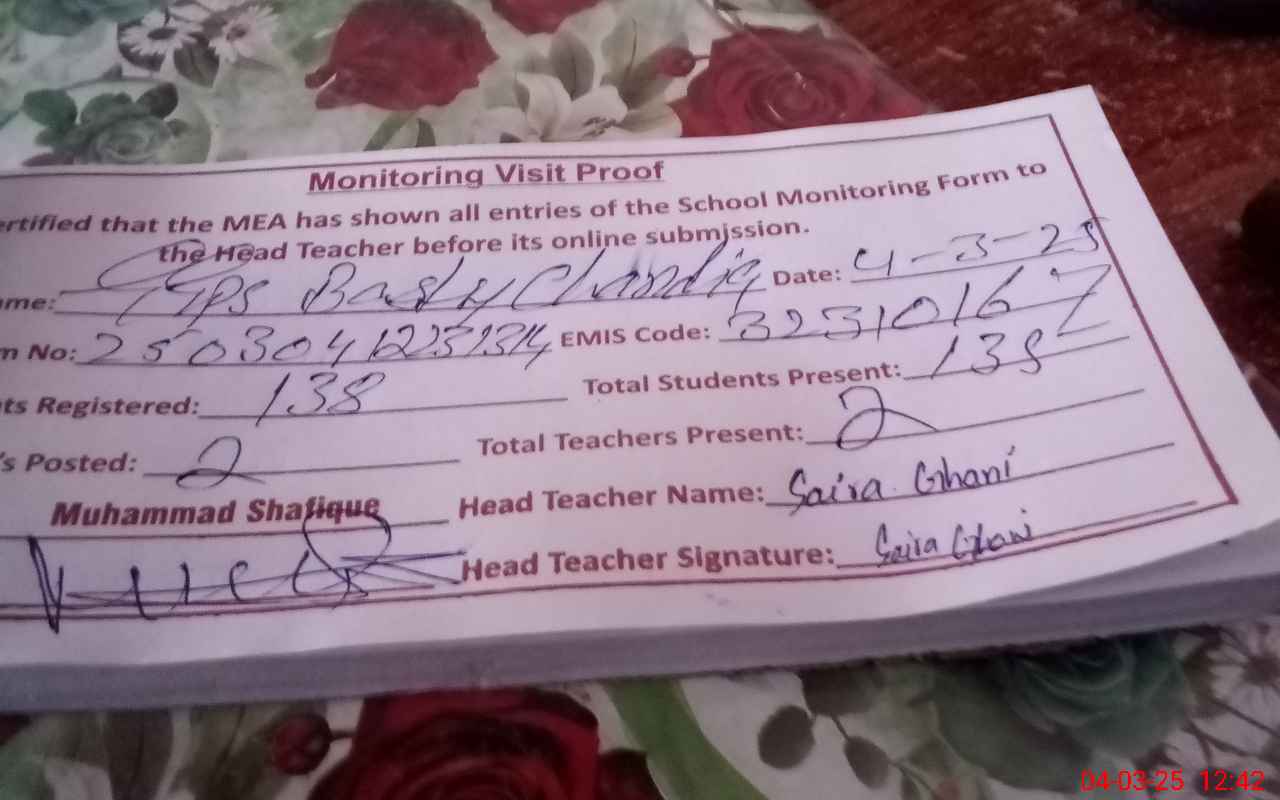 Monitoring Visit Proof
ertified that the MEA has shown all entries of the School Monitoring Form to
the Head Teacher before its online submission.
ame: GGPS Basty Chandia Date: 4-3-25
m No: EMIS Code: 32310167
ts Registered: 138 Total Students Present: 138
's Posted: 2 Total Teachers Present: 2
Muhammad Shafique Head Teacher Name: Saira Ghani
Head Teacher Signature: Saira Ghani
04-03-25 12:42